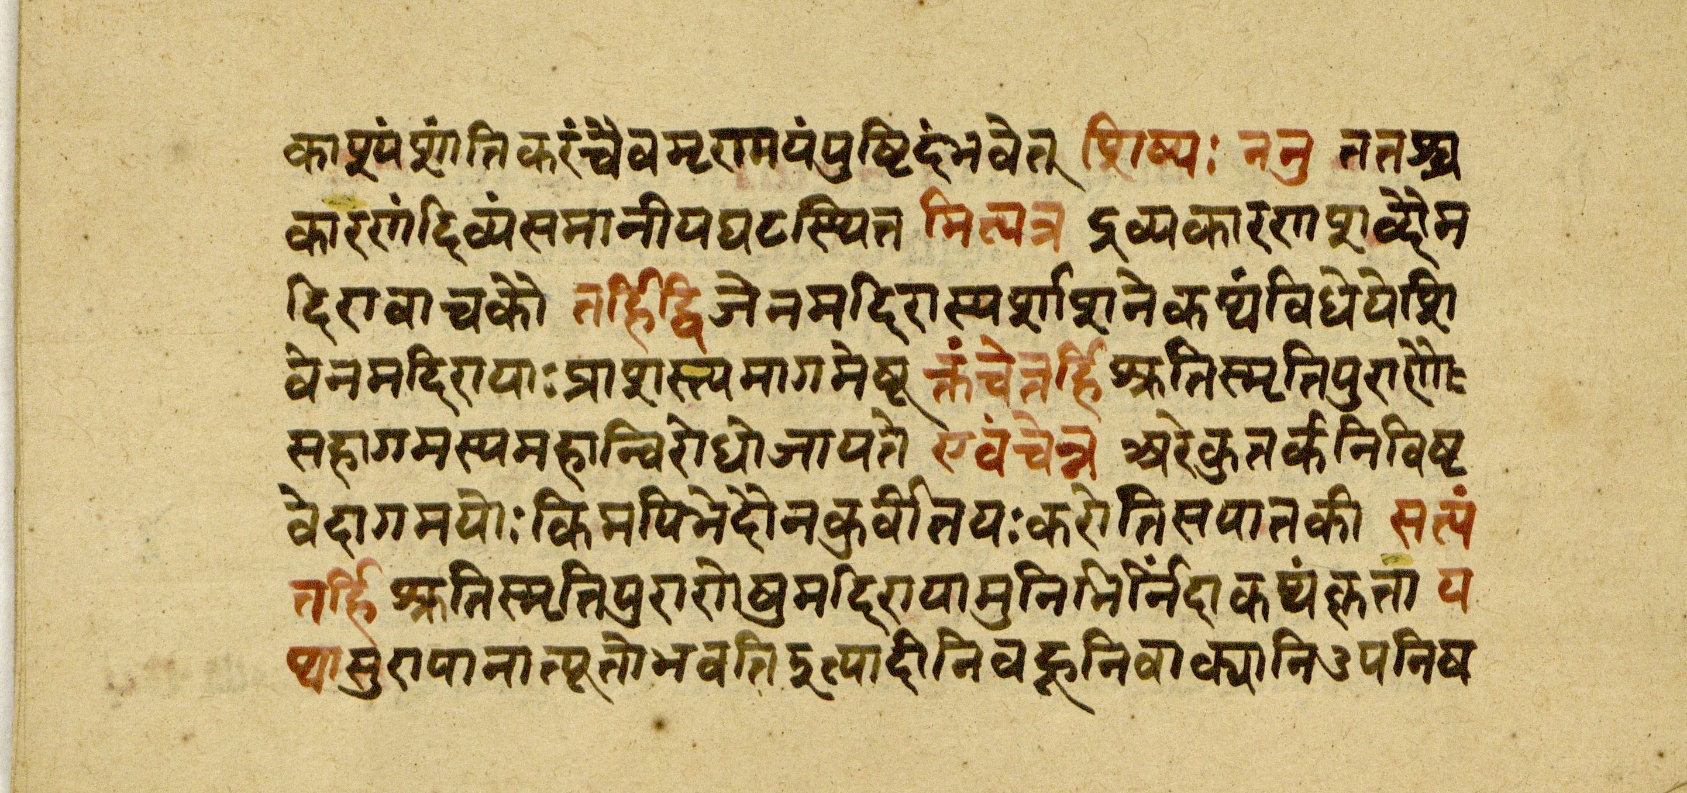 काश्यं शांतिकरं चैव मृरामयं पुष्टिदं भवेत् शिष्यः ननु ततश्च
कारणं दिव्यं समानीय घटस्थित मित्यत्र द्रव्यकारण शब्दौ म
दिरावाचकौ तर्हि द्विजेन मदिरास्पर्शाशने कथं विधेये शि
वेन मदिरायाः प्राशस्त्यमागमेषू क्तं चेत्तर्हि श्रुतिस्मृतिपुराणैः
सहागमस्य महान्विरोधो जायते एवं चेन्न अरे कुतर्कनिविष्ट
वेदागमयोः किमपि भेदो न कुर्वीत यः करोति स पातकी सत्यं
तर्हि श्रुतिस्मृतिपुराणेषु मदिराया मुनिभिर्निंदा कथं कृता य
था सुरापानात्पूतो भवति इत्यादीनि बहूनि वाक्यानि उपनिष